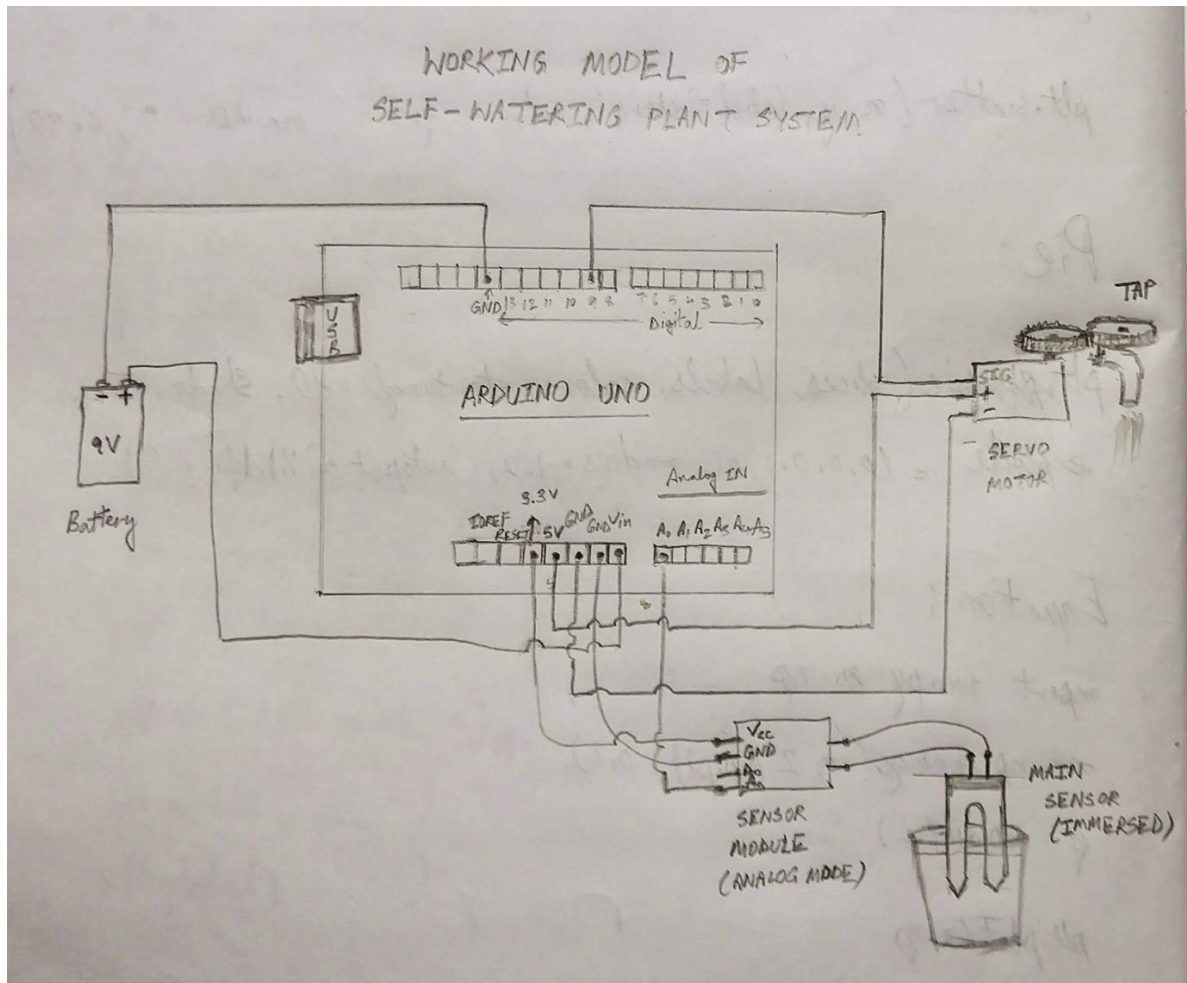 WORKING MODEL OF
SELF-WATERING PLANT SYSTEM
TAP
GND 13 12 11 10 9 8 7 6 5 4 3 2 1 0
Digital
USB
ARDUINO UNO
- +
9V
Battery
SIG
+
-
SERVO
MOTOR
Analog IN
3.3V
IOREF
RESET 5V GND GND Vin
A0 A1 A2 A3 A4 A5
Vcc
GND
A0
SENSOR
MODULE
(ANALOG MODE)
MAIN
SENSOR
(IMMERSED)
Pie: